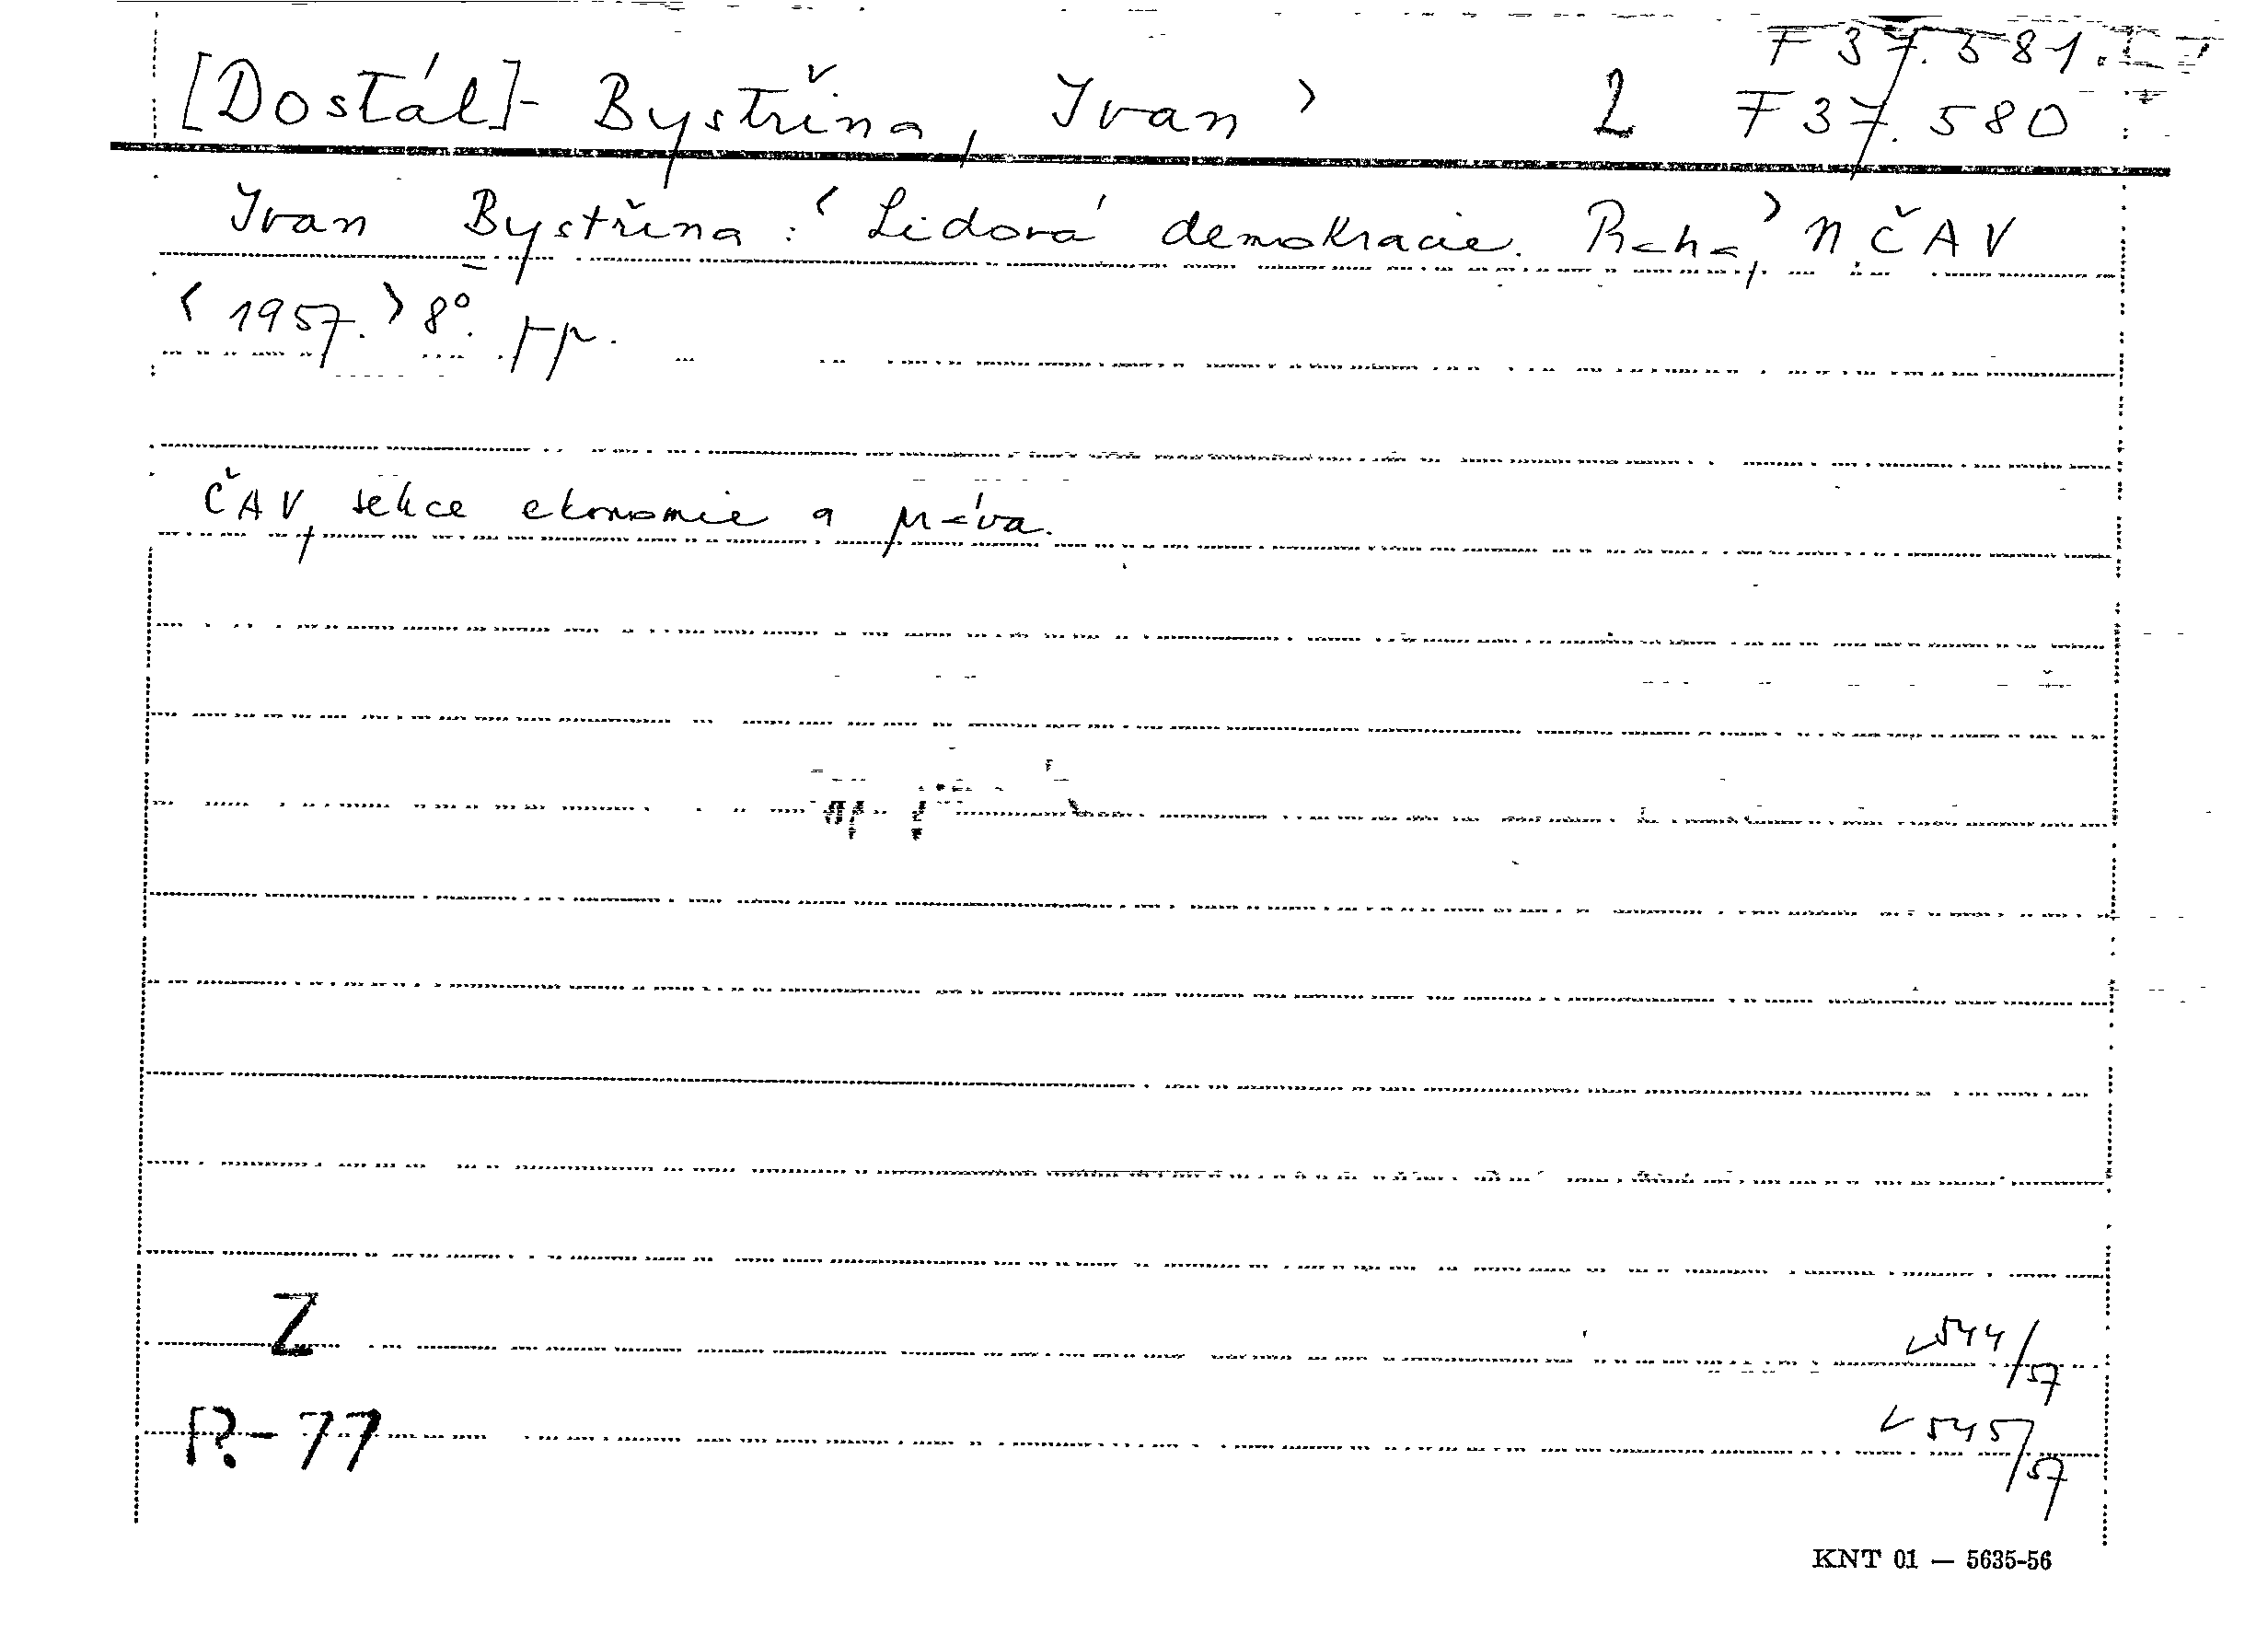 F 37.581
[Dostál]- Bystřina, Ivan > 2 F 37.580
Ivan Bystřina: < Lidová demokracie. Praha, > N.ČAV
< 1957. > 8°.
ČAV, sekce ekonomie a práva.
Z
544/57
R-77
545/57
KNT 01 — 5635-56